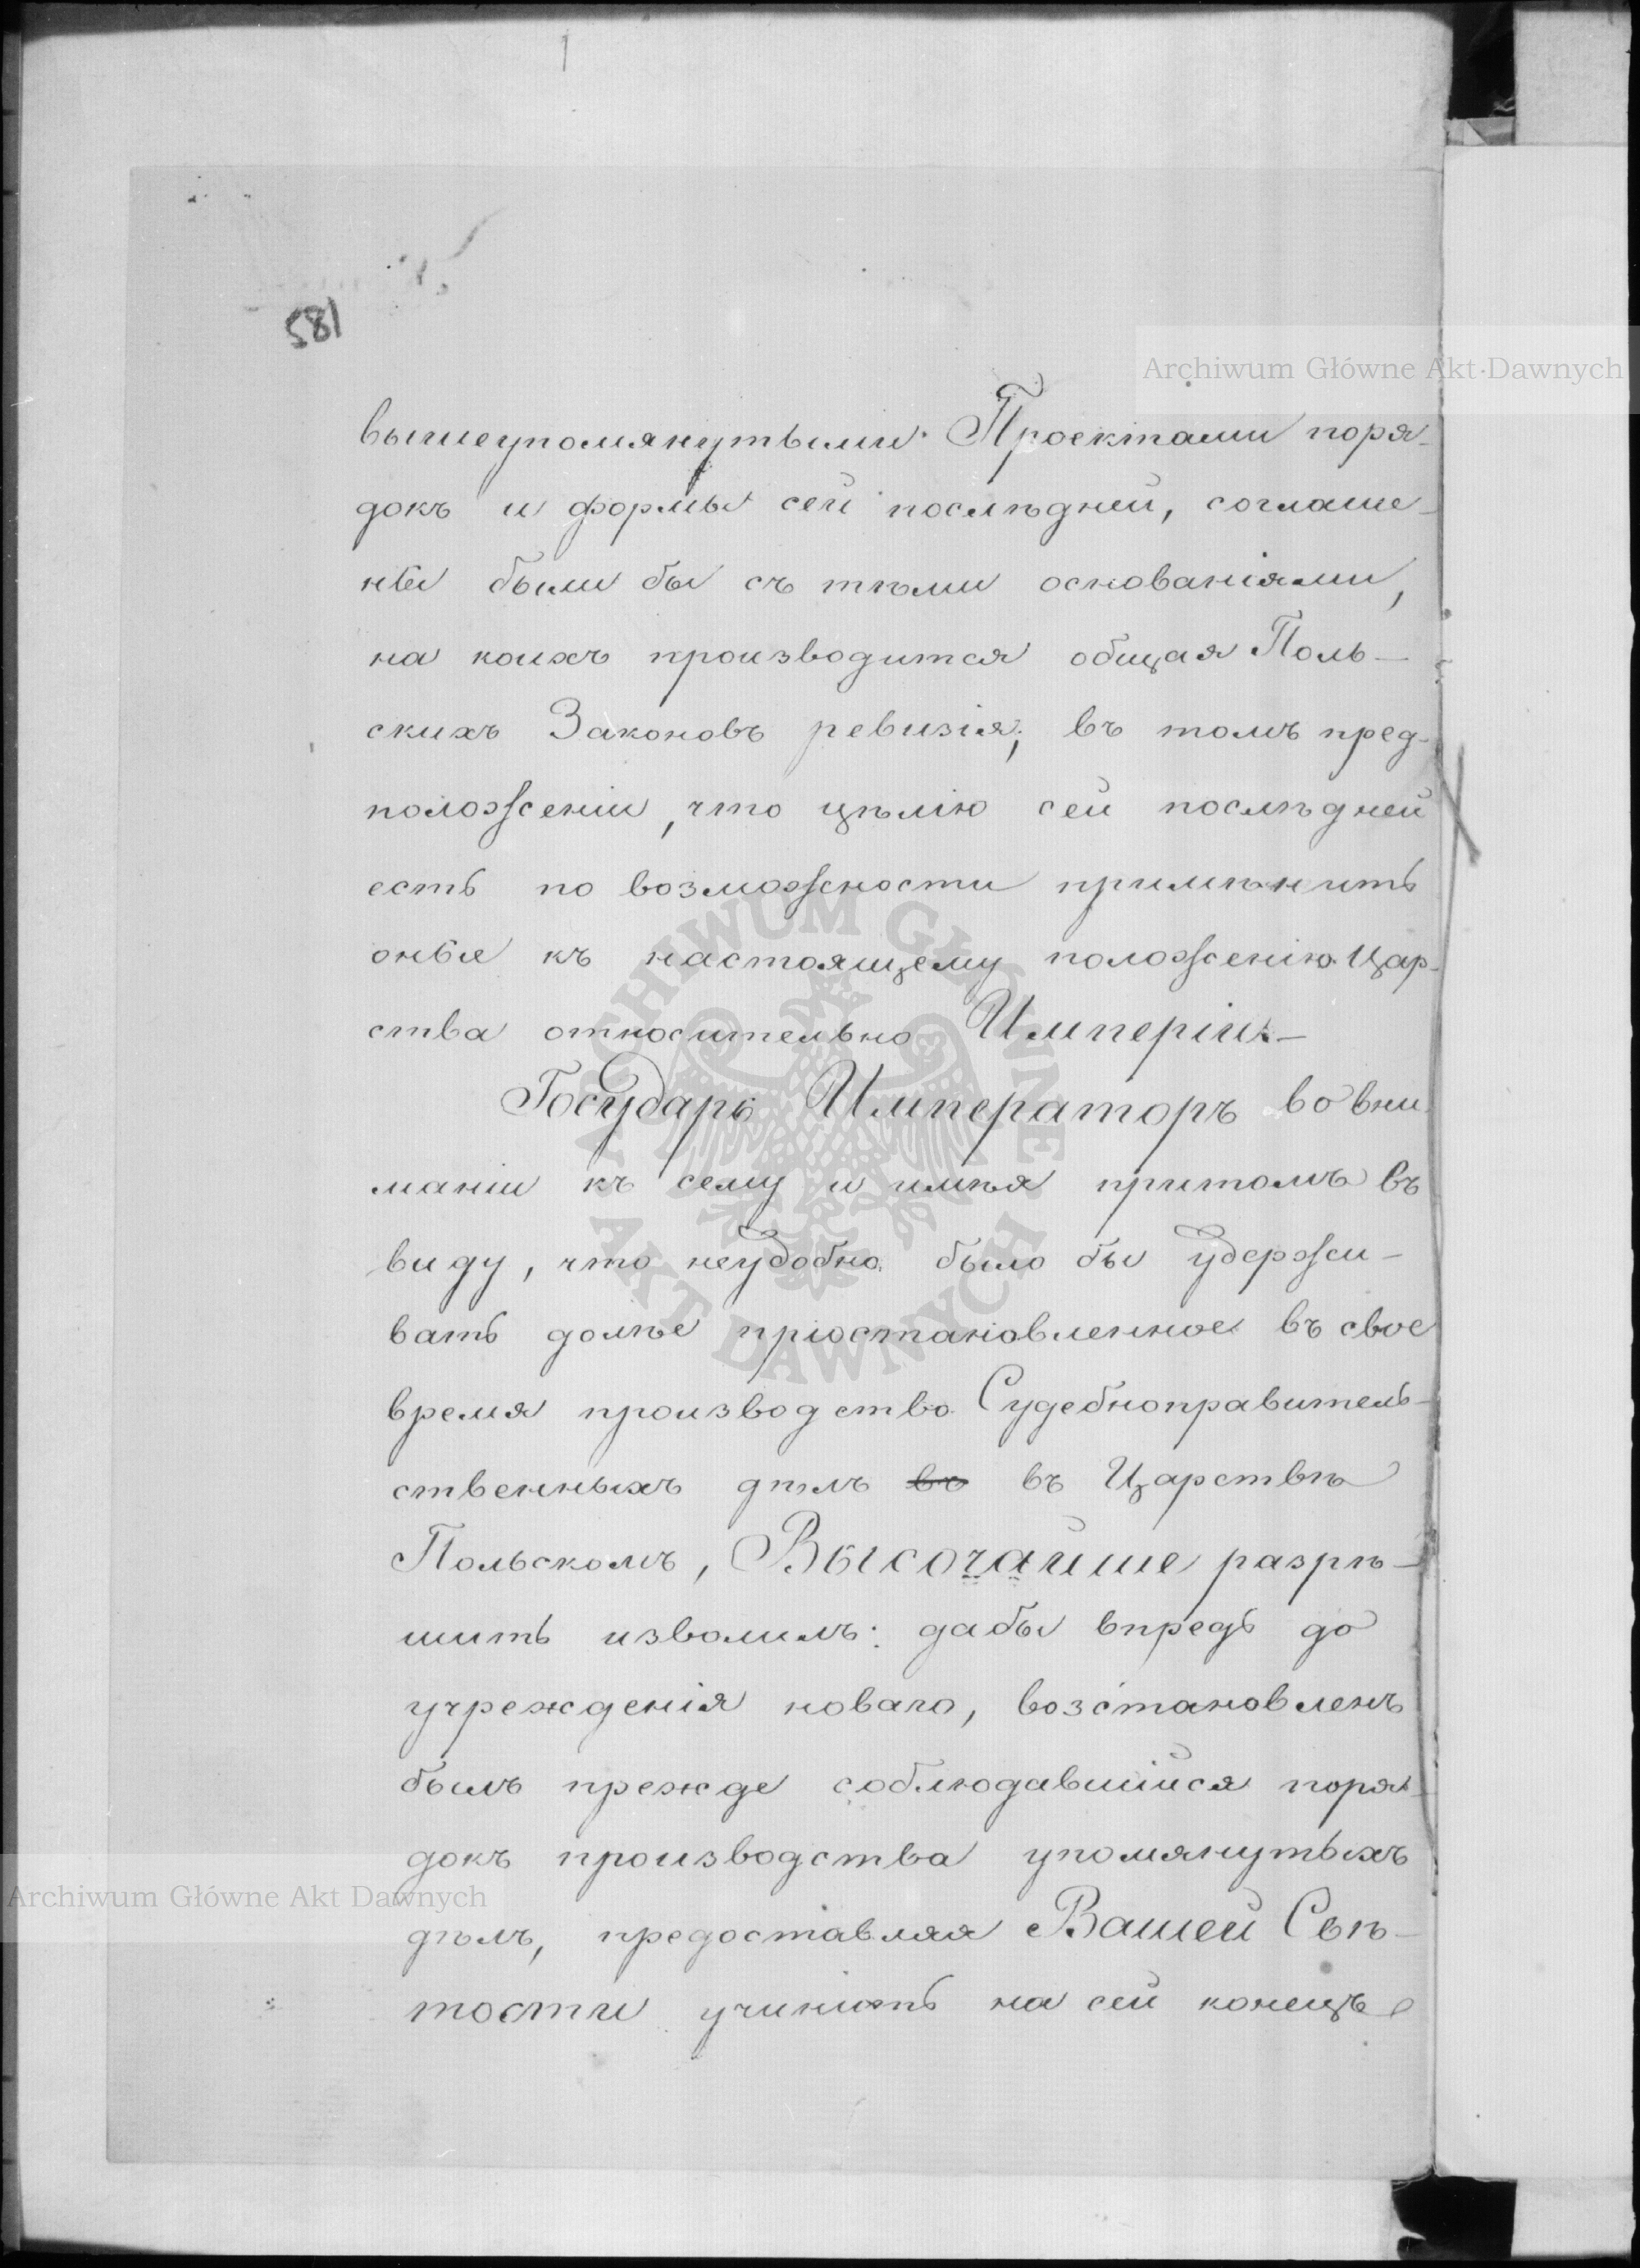 581
Archiwum Główne Akt Dawnych
вышеупомянутыми Проектами поря-
докъ и формы сей послѣдней, соглаше-
ны были бы съ тѣми основаніями,
на коихъ производится общая Поль-
скихъ Законовъ ревизія; въ томъ пред-
положеніи, что цѣлію сей послѣдней
есть по возможности примѣнить
оныя къ настоящему положенію Цар-
ства относительно Имперіи.-
Государь Императоръ во вни-
маніи къ сему и имѣя притомъ въ
виду, что неудобно было бы удержи-
вать долѣе пріостановленное въ свое
время производство Судебноправитель-
ственныхъ дѣлъ въ въ Царствѣ
Польскомъ, Высочайше разрѣ-
шить изволилъ: дабы впредь до
учрежденія новаго, возстановленъ
былъ прежде соблюдавшійся поря-
докъ производства упомянутыхъ
Archiwum Główne Akt Dawnych
дѣлъ, предоставляя Вашей Свѣ-
тости учинить на сей конецъ
ARCHIWUM GŁÓWNE AKT DAWNYCH